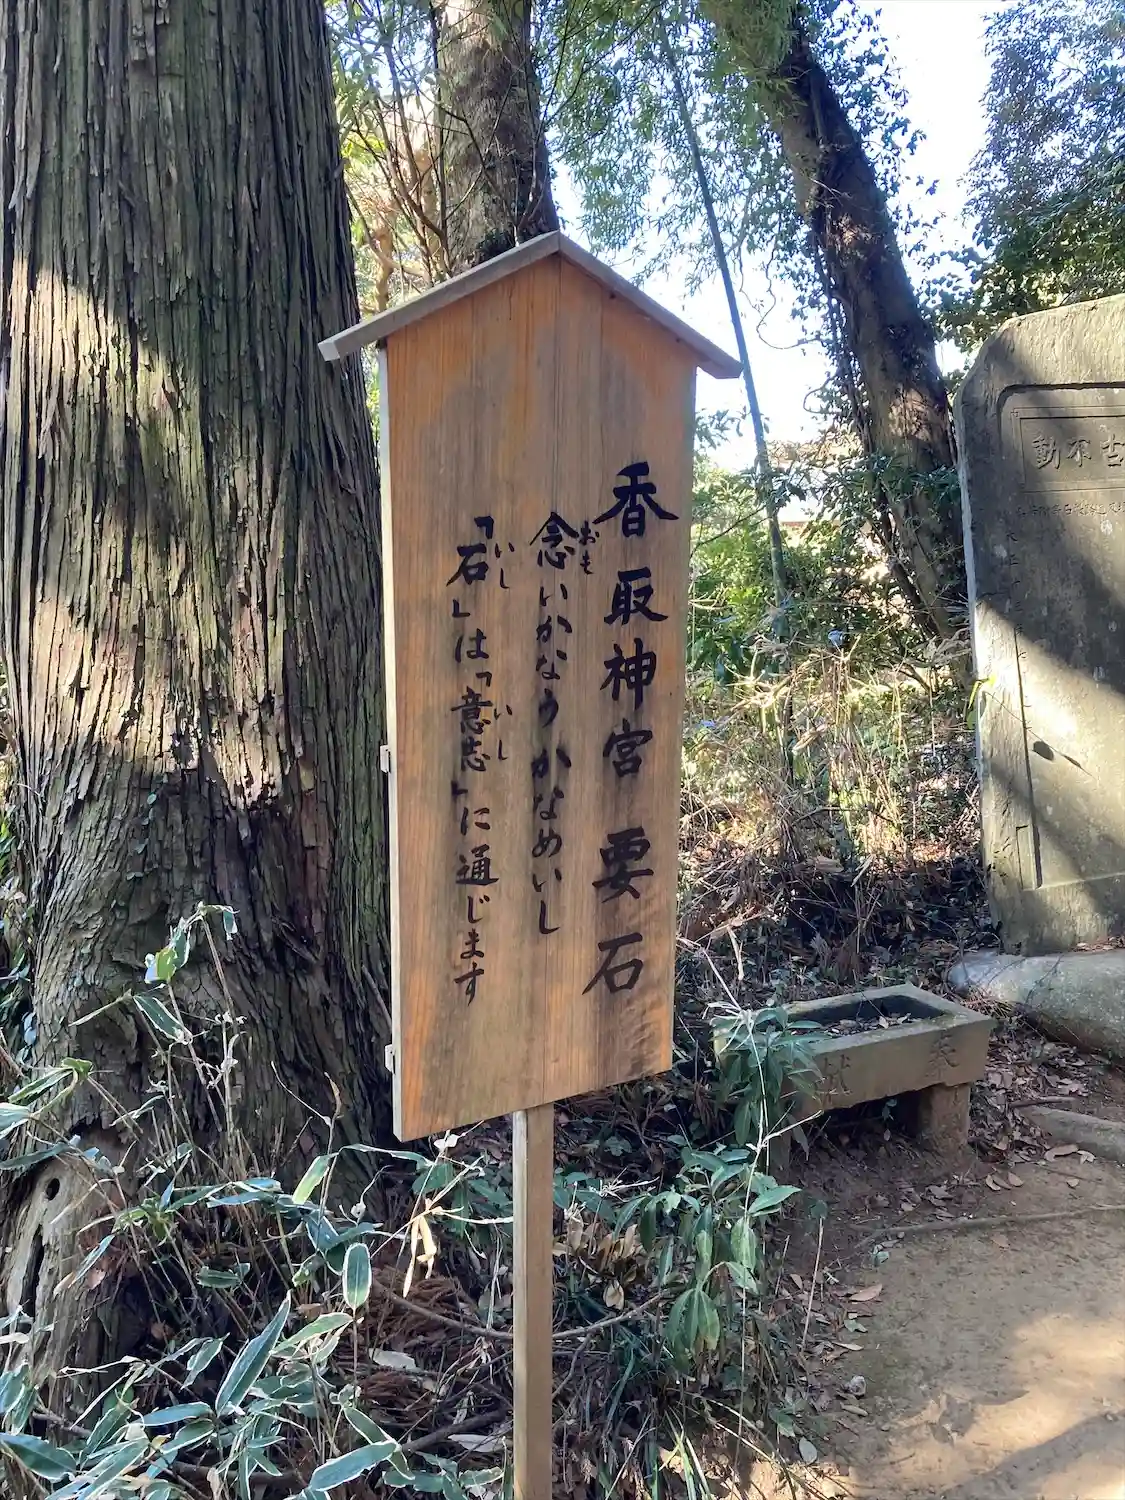 香取神宮 要石
念いかなうかなめいし
おも
「石」は「意志」に通じます
いし
いし
古不動
奉